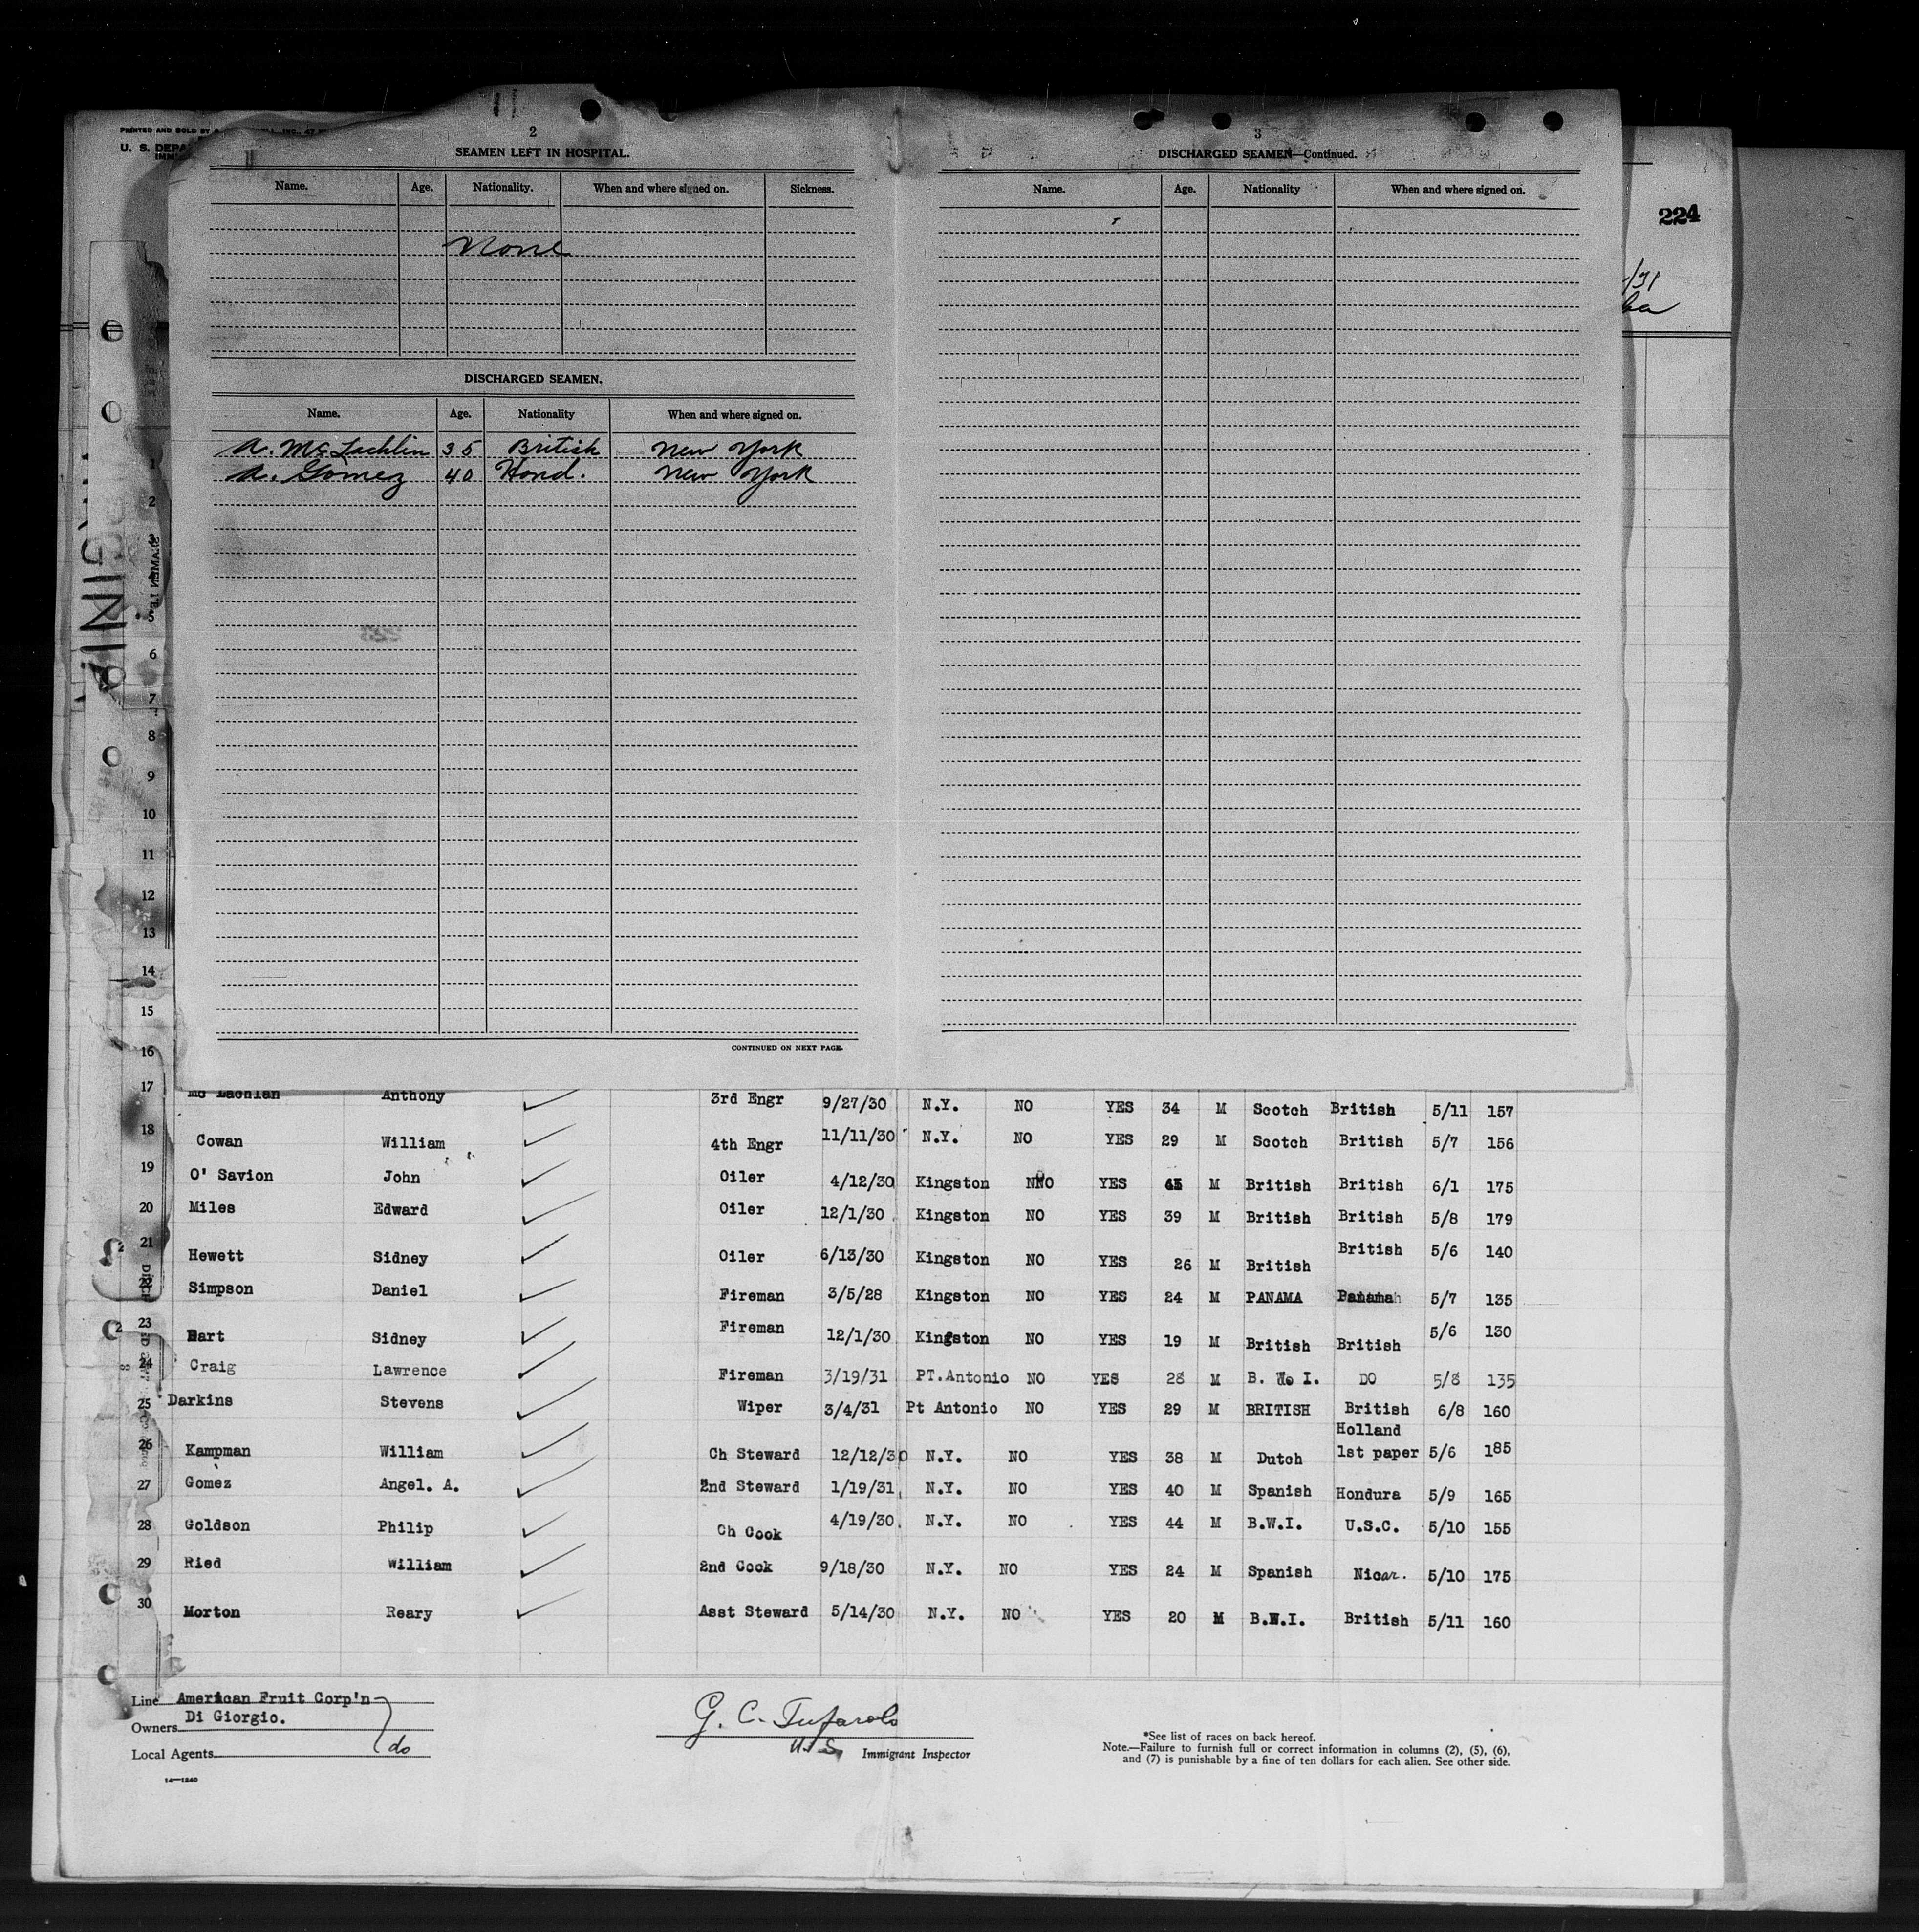 PRINTED AND SOLD BY
U. S. DEPA
2
SEAMEN LEFT IN HOSPITAL.
Name. Age. Nationality. When and where signed on. Sickness.
None
DISCHARGED SEAMEN.
Name. Age. Nationality When and where signed on.
A. McLachlin 35 British New York
A. Gomez 40 Hond. New York
CONTINUED ON NEXT PAGE.
3
DISCHARGED SEAMEN—Continued.
Name. Age. Nationality When and where signed on.
224
/31
ba
1
2
3
5
6
7
8
9
10
11
12
13
14
15
16
17 Mc Lachlan Anthony 3rd Engr 9/27/30 N.Y. NO YES 34 M Scotch British 5/11 157
18 Cowan William 4th Engr 11/11/30 N.Y. NO YES 29 M Scotch British 5/7 156
19 O' Savion John Oiler 4/12/30 Kingston NO YES 45 M British British 6/1 175
20 Miles Edward Oiler 12/1/30 Kingston NO YES 39 M British British 5/8 179
21 Hewett Sidney Oiler 6/13/30 Kingston NO YES 26 M British British 5/6 140
22 Simpson Daniel Fireman 3/5/28 Kingston NO YES 24 M PANAMA Panama 5/7 135
23 Hart Sidney Fireman 12/1/30 Kingston NO YES 19 M British British 5/6 130
24 Craig Lawrence Fireman 3/19/31 PT.Antonio NO YES 28 M B. W. I. DO 5/8 135
25 Darkins Stevens Wiper 3/4/31 Pt Antonio NO YES 29 M BRITISH British 6/8 160
26 Kampman William Ch Steward 12/12/30 N.Y. NO YES 38 M Dutch Holland 1st paper 5/6 185
27 Gomez Angel. A. 2nd Steward 1/19/31 N.Y. NO YES 40 M Spanish Hondura 5/9 165
28 Goldson Philip Ch Cook 4/19/30 N.Y. NO YES 44 M B.W.I. U.S.C. 5/10 155
29 Ried William 2nd Cook 9/18/30 N.Y. NO YES 24 M Spanish Nicar. 5/10 175
30 Morton Reary Asst Steward 5/14/30 N.Y. NO YES 20 M B.W.I. British 5/11 160
Line American Fruit Corp'n
Owners Di Giorgio.
Local Agents do
14—1240
G. C. Tufarolo
U.S. Immigrant Inspector
*See list of races on back hereof.
Note.—Failure to furnish full or correct information in columns (2), (5), (6),
and (7) is punishable by a fine of ten dollars for each alien. See other side.